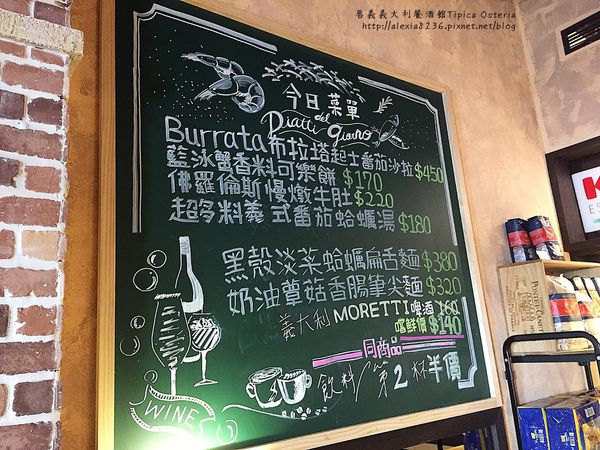 昏義義大利餐酒館Tipica Osteria
http://alexia8236.pixnet.net/blog
今日菜單
Piatti del Giorno
Burrata布拉塔起士番茄沙拉$450
藍泳蟹香料可樂餅 $170
佛羅倫斯慢燉牛肚 $220
超多料義式番茄蛤蠣湯 $180
黑殼淡菜蛤蠣扁舌麵 $380
奶油蕈菇香腸筆尖麵 $320
義大利 MORETTI啤酒 160
嚐鮮價 $140
同商品
飲料/第2杯半價
WINE